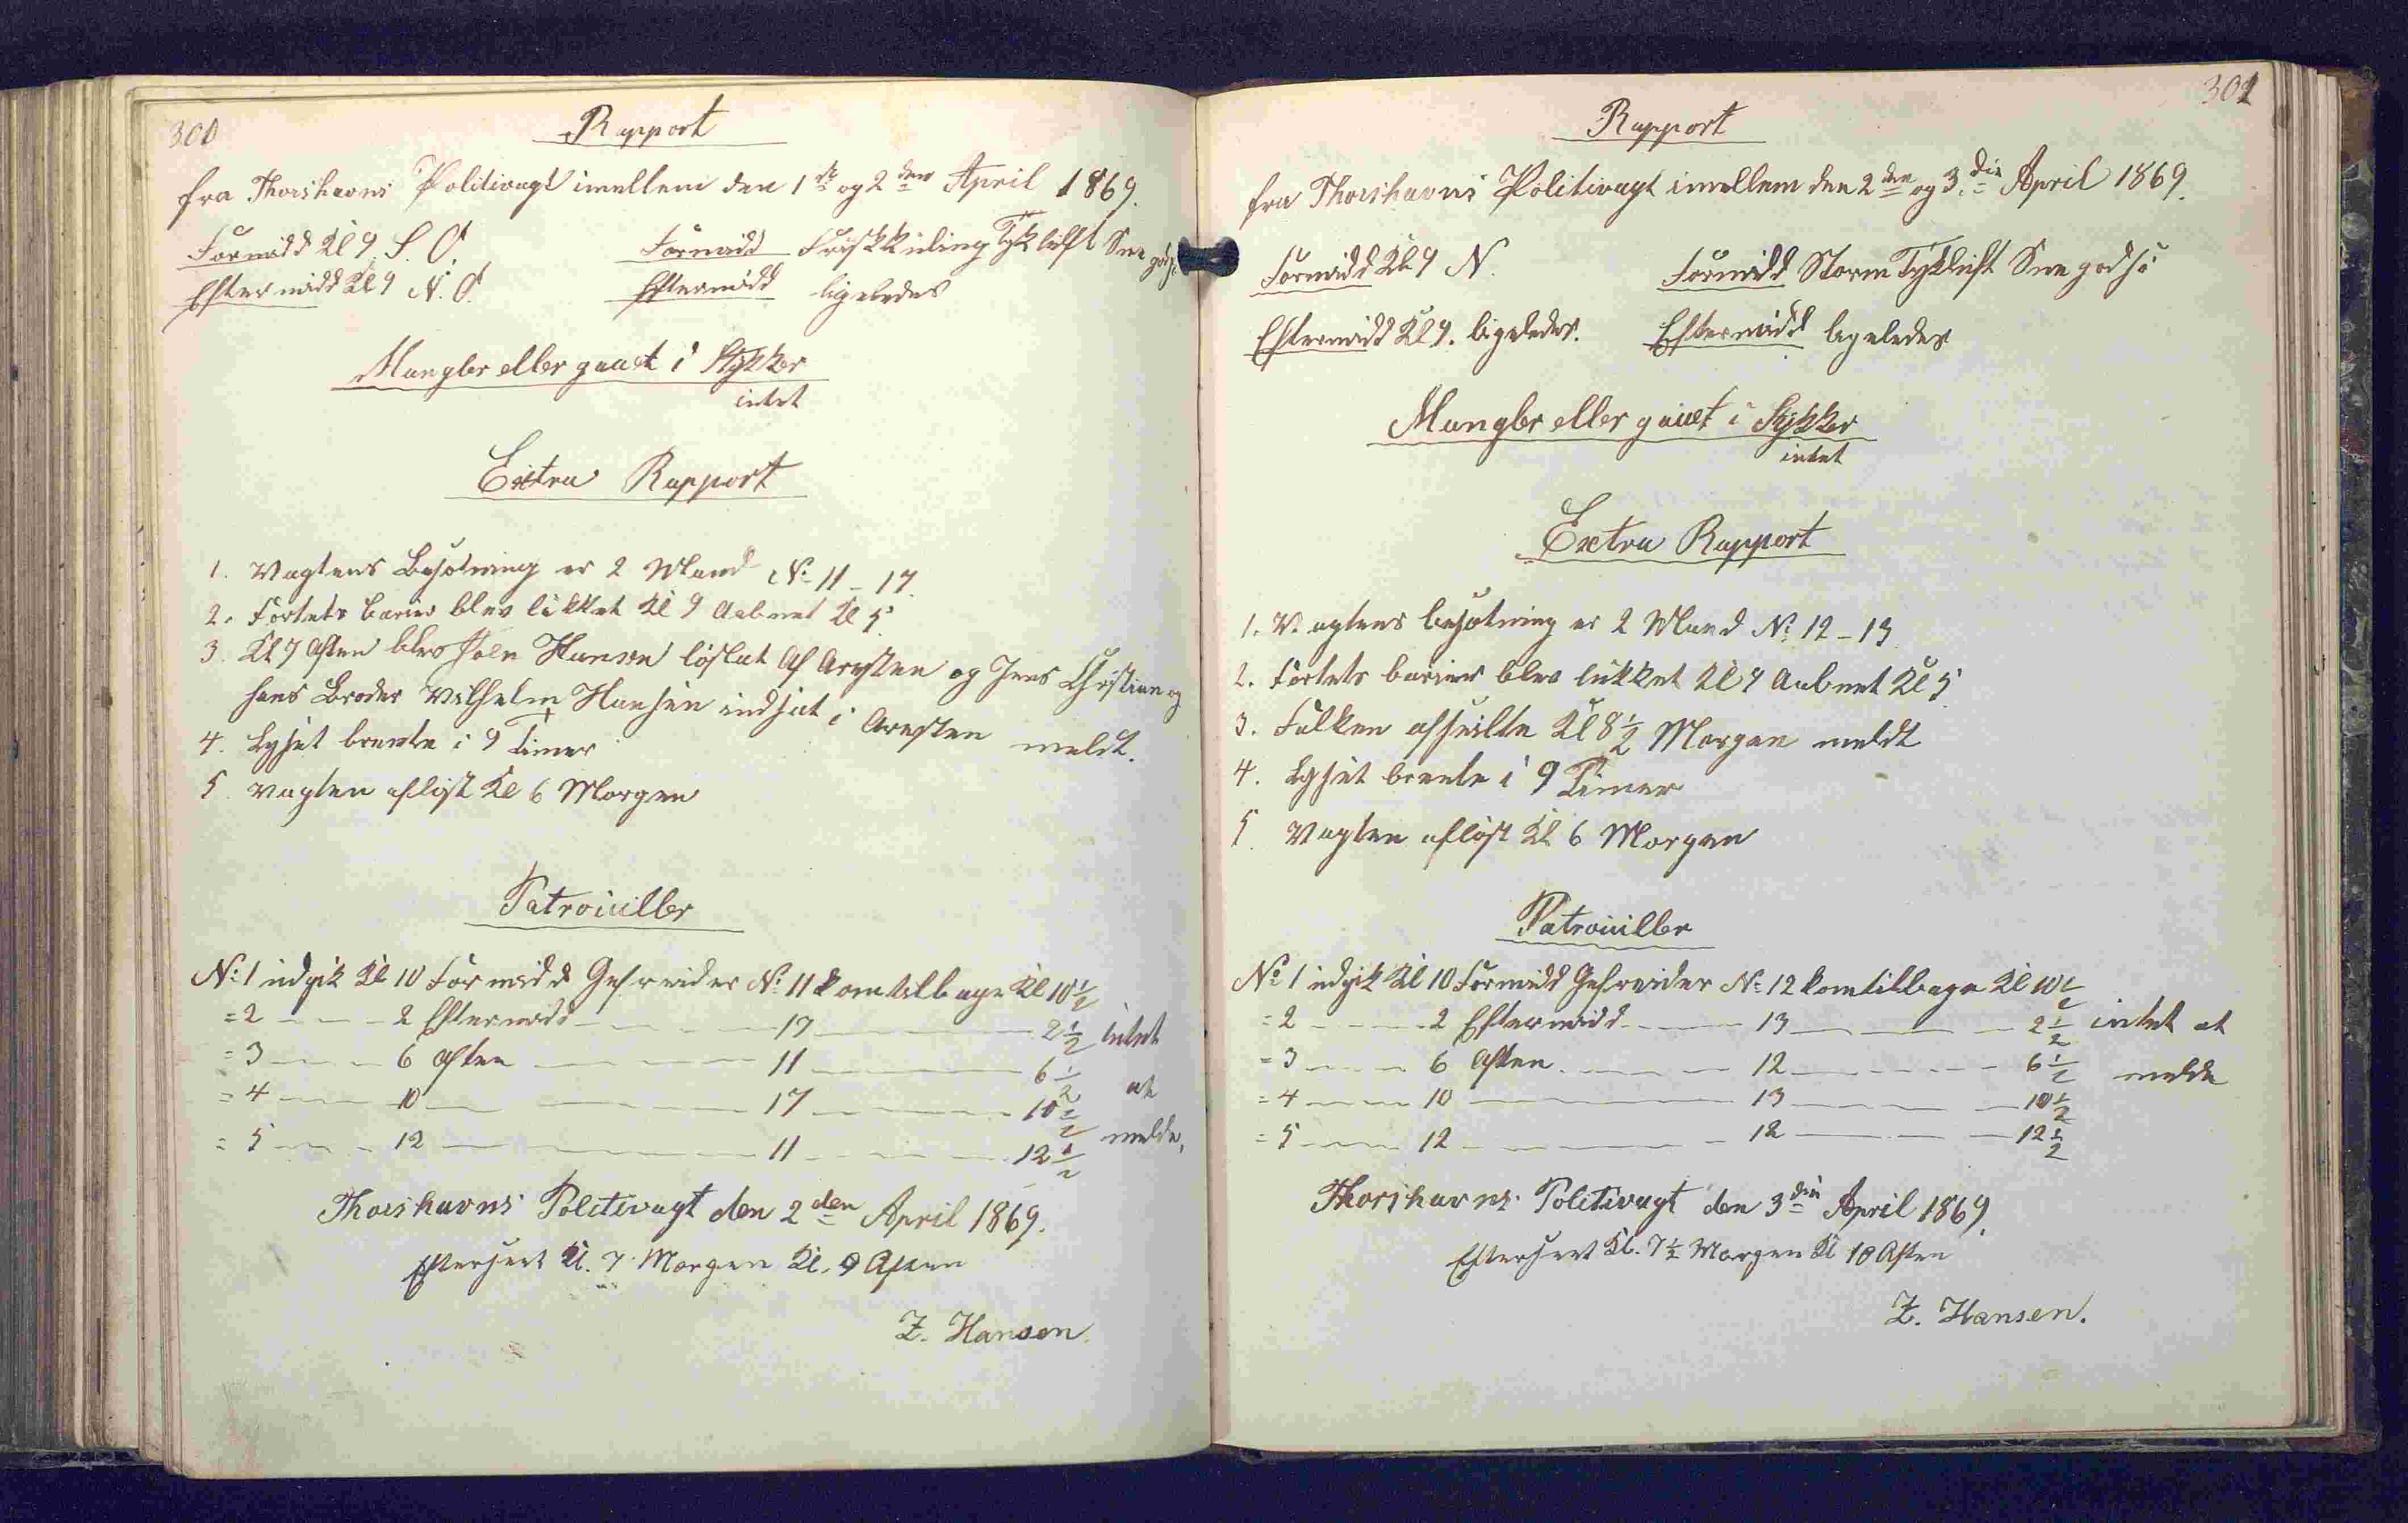 301
Rapport
fra Thorshavns Politivagt imellem den 1ste og 2den April 1869.
Formidd Kl 9 S. O. Formidd Frisk Kuling Tyk luft Sne
Eftermidd Kl 9 N. O. Eftermidd ligeledes
Mangler eller gaaet i Stykker
intet
Extra Rapport
1. Vagtens Besætning er 2 Mand No 11 - 17.
2. Fortets barier blev lukket Kl 9 Aabnet Kl 5.
3. Kl 7 Aften blev Hansen løslat Af Aresten og Jens Christian og
hans Broder Vilhelm Hansen indsat i Aresten meldt.
4. Lyset brente i 9 Timer
5. Vagten afløst Kl 6 Morgen
Patrouiller
No 1 udgik Kl 10 Formidd Gefreider No 11 kom tilbage Kl 10 1/2
= 2 - - - 2 Eftermidd - - - 17 - - - 2 1/2 intet
= 3 - - - 6 Aften - - - 11 - - - 6 1/2
= 4 - - - 10 - - - 17 - - - 10 1/2 at
= 5 - - - 12 - - - 11 - - - 12 1/2 melde.
Thorshavns Politivagt den 2den April 1869.
Efterseet Kl. 7 Morgen Kl. 9 Aften
Z. Hansen.
302
Rapport
fra Thorshavns Politivagt imellem den 2den og 3die April 1869.
Formidd Kl 9 N. Formidd Storm Tykluft Sne
Eftermidd Kl 9. ligeledes. Eftermidd ligeledes
Mangler eller gaaet i Stykker
intet
Extra Rapport
1. Vagtens besætning er 2 Mand No 12 - 13.
2. Fortets barier blev lukket Kl 9 Aabnet Kl 5.
3. Falken afseilte Kl 8 1/2 Morgen meldt
4. Lyset brente i 9 Timer
5. Vagten afløst Kl 6 Morgen
Patrouiller
No 1 udgik Kl 10 Formidd Gefreider No 12 kom tilbage Kl 10 1/2
= 2 - - - 2 Eftermidd - - - 13 - - - 2 1/2 intet at
= 3 - - - 6 Aften - - - 12 - - - 6 1/2 melde
= 4 - - - 10 - - - 13 - - - 10 1/2
= 5 - - - 12 - - - 12 - - - 12 1/2
Thorshavns Politivagt den 3die April 1869.
Efterseet Kl. 7 1/2 Morgen Kl 10 Aften
Z. Hansen.